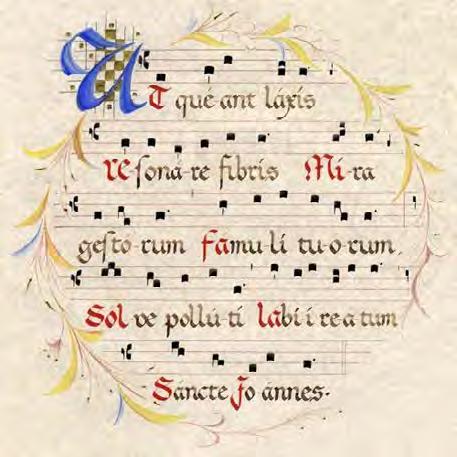 UT queant láxis
resoná-re fibris Mi-ra
gesto-rum famu-li tu-o-rum,
Sol ve pollú-ti labi i reatum
Sáncte Joánnes.